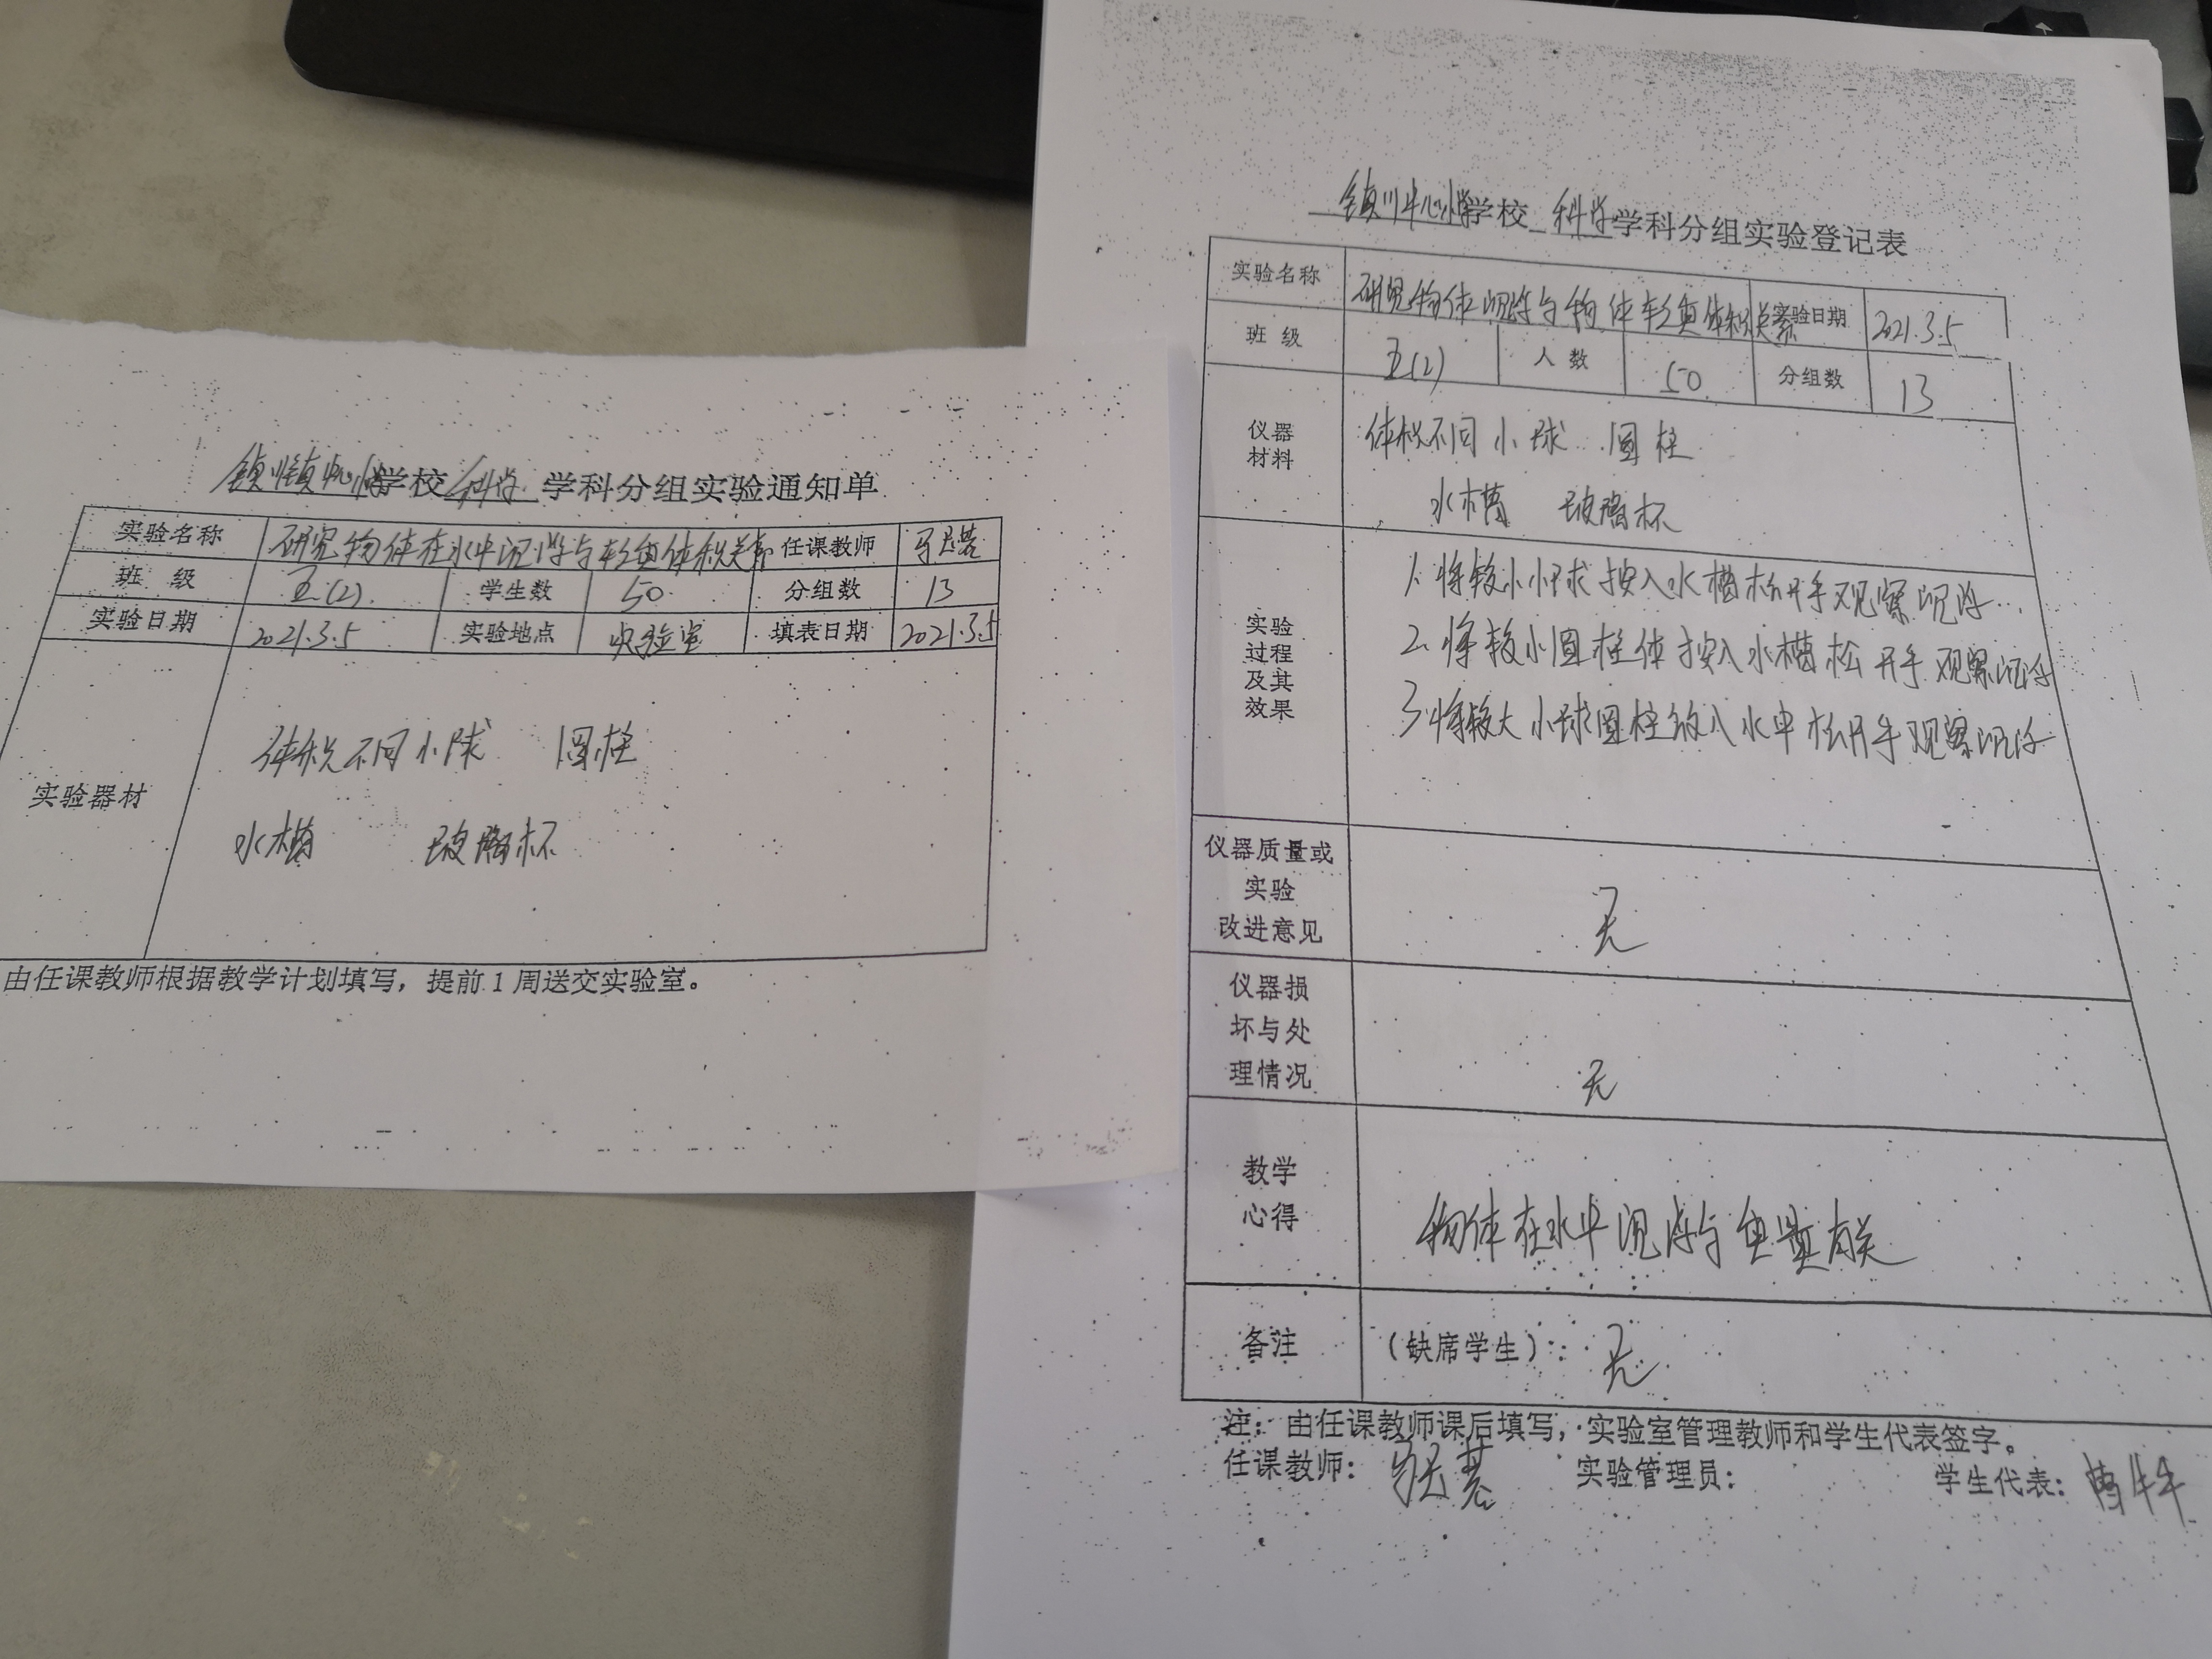 学校 科学 学科分组实验通知单
实验名称 研究物体在水中沉浮与轻重体积关系 任课教师
班 级 五(2). 学生数 50 分组数 13
实验日期 2021.3.5 实验地点 实验室 填表日期 2021.3.5
实验器材
体积不同小球 圆柱
水槽 玻璃杯
由任课教师根据教学计划填写，提前1周送交实验室。
镇川中心小学学校 科学 学科分组实验登记表
实验名称 研究物体沉浮与物体轻重体积关系 实验日期 2021.3.5
班 级 五(2) 人 数 50 分组数 13
仪器
材料
体积不同小球 圆柱
水槽 玻璃杯
实验
过程
及其
效果
1.将较小小球按入水槽松开手观察沉浮
2.将较小圆柱体按入水槽松开手观察沉浮
3.将较大小球圆柱放入水中松开手观察沉浮
仪器质量或
实验
改进意见
无
仪器损
坏与处
理情况
无
教学
心得
物体在水中沉浮与重量有关
备注 （缺席学生）：无
注：由任课教师课后填写，实验室管理教师和学生代表签字。
任课教师： 实验管理员： 学生代表：